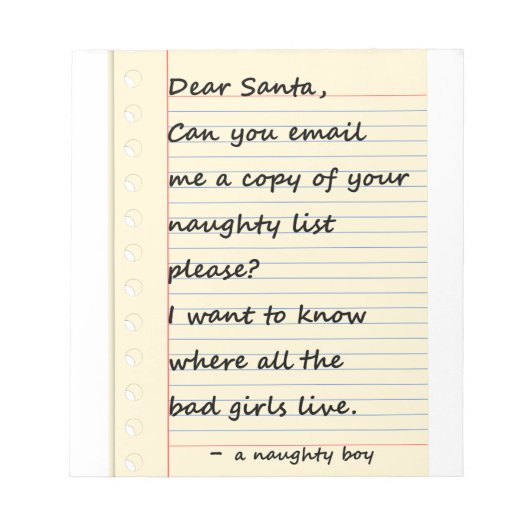 Dear Santa,
Can you email
me a copy of your
naughty list
please?
I want to know
where all the
bad girls live.
- a naughty boy